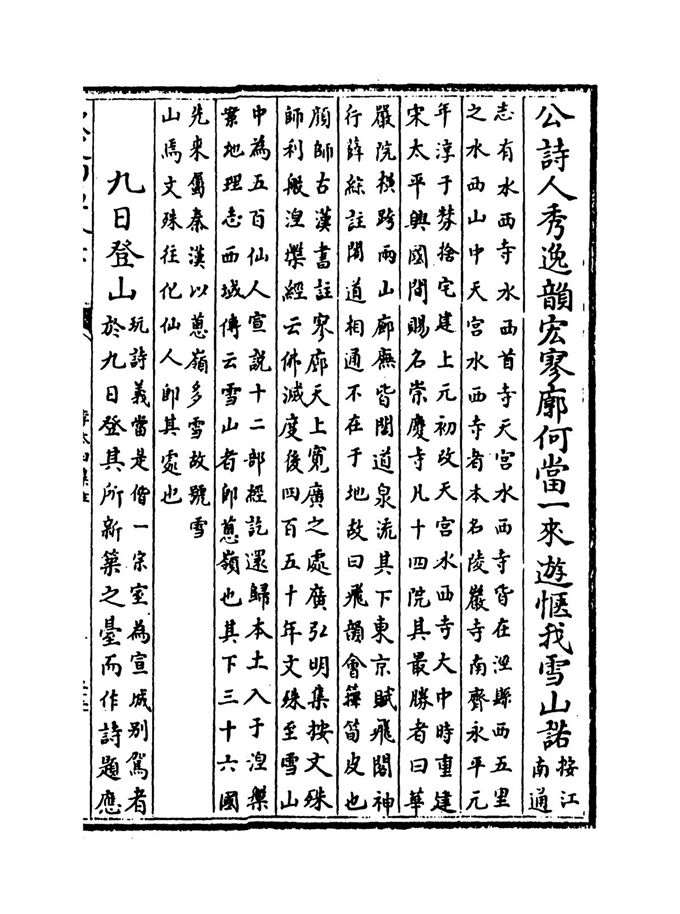 公詩人秀逸韻宏寥廓何當一來遊愜我雪山諾
按江
南通
志有水西寺水西首寺天宫水西寺皆在涇縣西五里
之水西山中天宫水西寺者本名陵巖寺南齊永平元
年淳于棼捨宅建上元初改天宫水西寺大中時重建
宋太平興國間賜名崇慶寺凡十四院其最勝者曰華
嚴院横跨兩山廊廡皆閣道泉流其下東京賦飛閣神
行薛綜註閣道相通不在于地故曰飛韻會籜筍皮也
顔師古漢書註寥廓天上寛廣之處廣弘明集按文殊
師利般涅槃經云佛滅度後四百五十年文殊至雪山
中為五百仙人宣説十二部經訖還歸本土入于涅槃
案地理志西域傳云雪山者即蔥嶺也其下三十六國
先來屬秦漢以蔥嶺多雪故號雪
山焉文殊往化仙人即其處也
九日登山
玩詩義當是偕一宗室為宣城别駕者
於九日登其所新築之臺而作詩題應